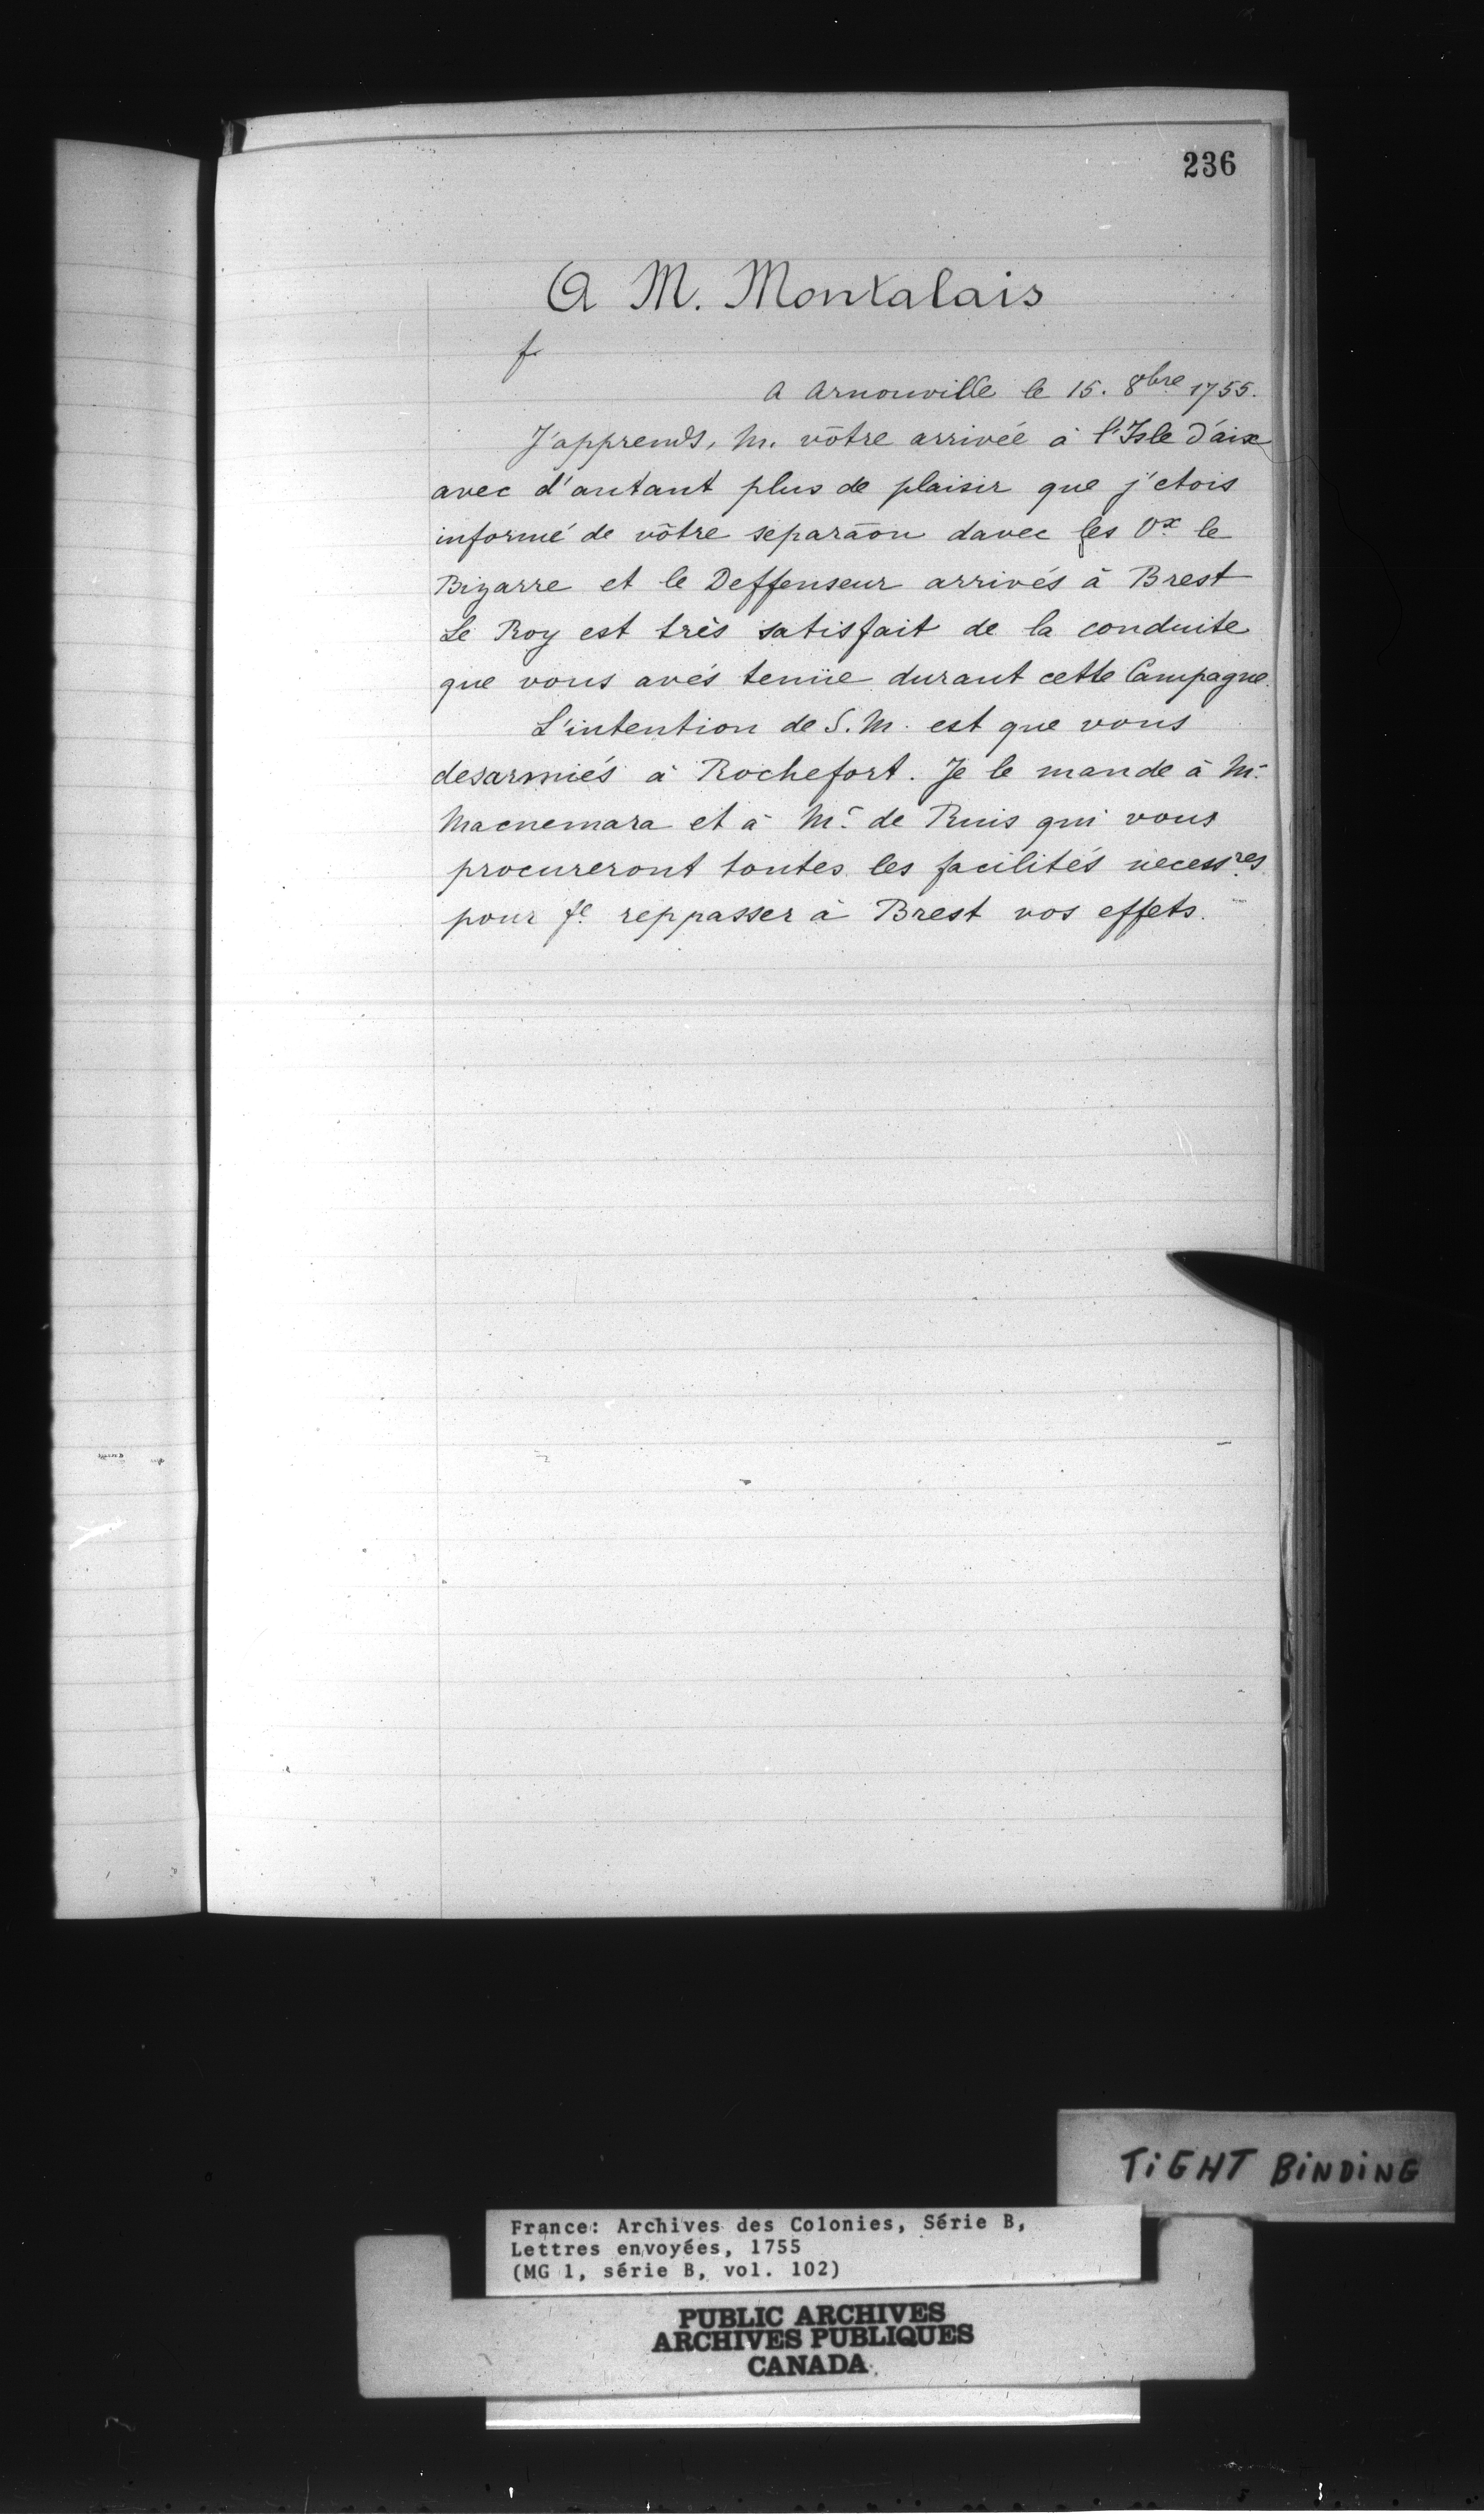 236
A M. Montalais
f
A Arnouville le 15. 8bre 1755.
J'apprends, M. vôtre arrivée à l'Isle d'aix
avec d'autant plus de plaisir que j'etois
informé de vôtre separaōn davec les Vx le
Bizarre et le Deffenseur arrivés à Brest
Le Roy est très satisfait de la conduite
que vous avés tenüe durant cette Campagne.
L'intention de S. M. est que vous
desarmiés à Rochefort. Je le mande à Mr
Macnemara et à Mr de Ruis qui vous
procureront toutes les facilités necessres
pour fe reppasser à Brest vos effets.
TIGHT BINDING
France: Archives des Colonies, Série B,
Lettres envoyées, 1755
(MG 1, série B, vol. 102)
PUBLIC ARCHIVES
ARCHIVES PUBLIQUES
CANADA